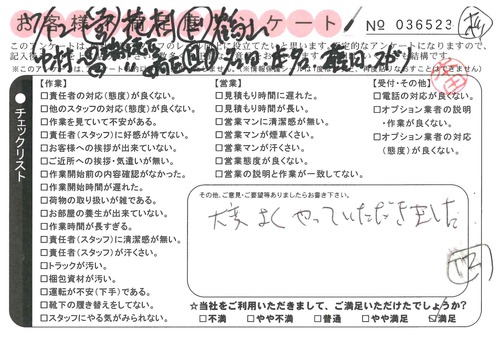 お客様アンケート
No 036523
チェックリスト
【作業】
□責任者の対応(態度)が良くない。
□他のスタッフの対応(態度)が良くない。
□作業を見ていて不安がある。
□責任者(スタッフ)に好感が持てない。
□お客様への挨拶が出来ていない。
□ご近所への挨拶・気遣いが無い。
□作業開始前の内容確認がなかった。
□作業開始時間が遅れた。
□荷物の取り扱いが雑である。
□お部屋の養生が出来ていない。
□作業時間が長すぎる。
□責任者(スタッフ)に清潔感が無い。
□責任者(スタッフ)が汗くさい。
□トラックが汚い。
□梱包資材が汚い。
□運転が不安(下手)である。
□靴下の履き替えをしてない。
□スタッフにやる気が感じられない。
【営業】
□見積もり時間に遅れた。
□見積もり時間が長い。
□営業マンに清潔感が無い。
□営業マンが煙草くさい。
□営業マンが汗くさい。
□営業態度が良くない。
□営業の説明と作業が違った。
【受付・その他】
□電話の対応が良くない。
□オプション業者の説明・作業が良くない。
□オプション業者の対応(態度)が良くない。
その他、ご意見・ご要望等ありましたらお書き下さい。
大変よくやっていただきました
☆当社をご利用いただきまして、ご満足いただけたでしょうか?
□不満 □やや不満 □普通 □やや満足 ☑満足